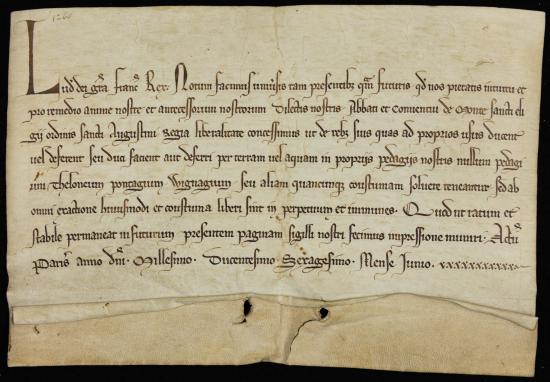 1260
Lud' dei gr̄a franc' Rex. Notum facimus uniu'sis tam presentib; q̄m futuris qd' nos pietatis intuitu et
pro remedio anime nostre et antecessorum nostrorum Dilectis nostris Abbati et Conuentui de Monte sancti eli
gij ordinis sancti Augustini Regia liberalitate concessimus ut de reb; suis quas ad proprios usus ducent
uel deferent seu duci facient aut deferri per terram uel aquam in proprijs pedagijs nostris nullum pedagi
um Theloneum pontagium Wignagium seu aliam quamcunq; coustumam soluere teneantur sed ab
omni exactione huiusmodi et coustuma liberi sint in perpetuum et immunes. Quod ut ratum et
stabile permaneat in futurum presentem paginam sigilli nostri fecimus impressione muniri. Actū
Paris' anno dn̄i. Millesimo. Ducentesimo. Sexagesimo. Mense Junio. xxxxxxxxxxxx